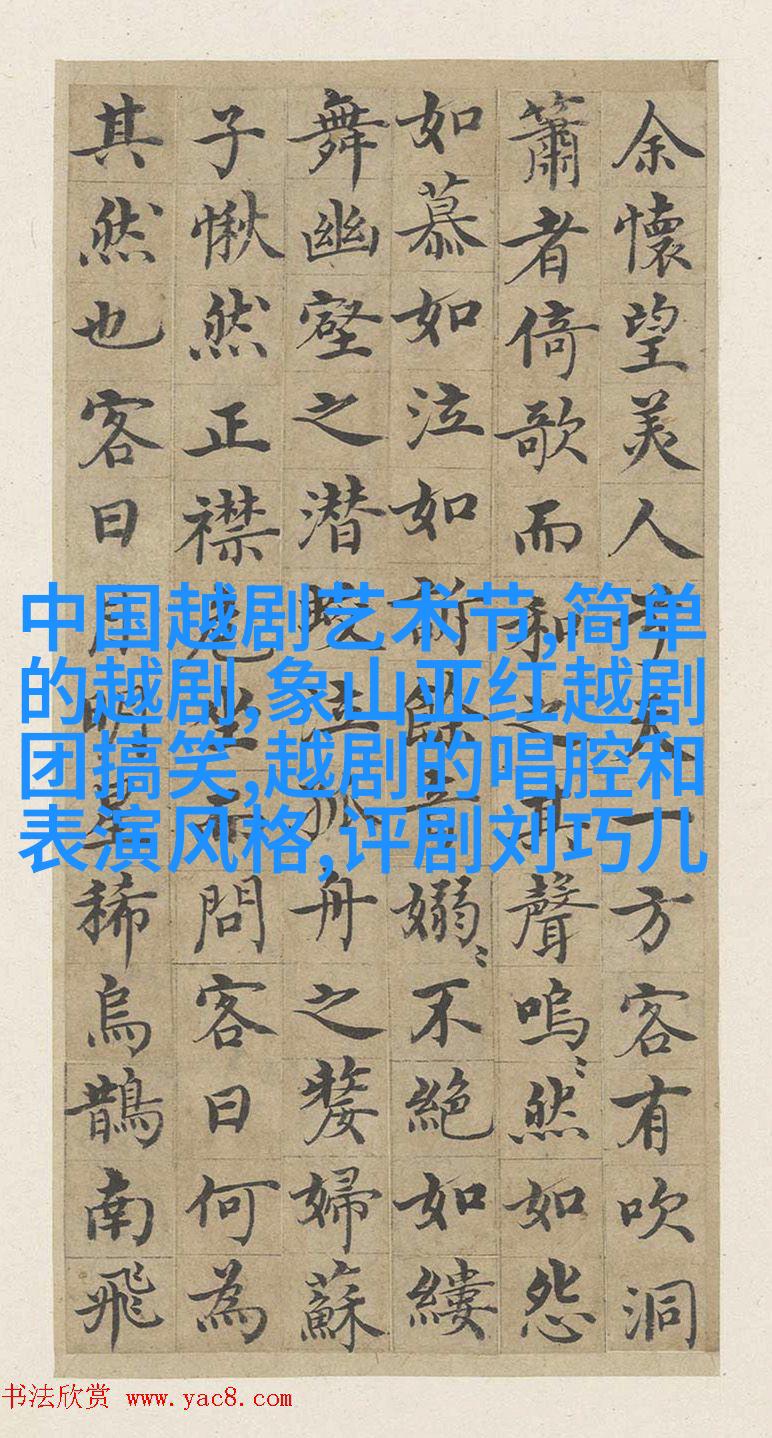 余懷望美人兮天一方客有吹洞
簫者倚歌而和之其聲嗚〻然如怨
如慕如泣如訴餘音嫋〻不絕如縷
舞幽壑之潛蛟泣孤舟之嫠婦蘇
子愀然正襟危坐而問客曰何為
其然也客曰月明星稀烏鵲南飛
中国越剧艺术节,简单
的越剧,象山亚红越剧
团搞笑,越剧的唱腔和
表演风格,评剧刘巧儿
书法欣赏 www.yac8.com